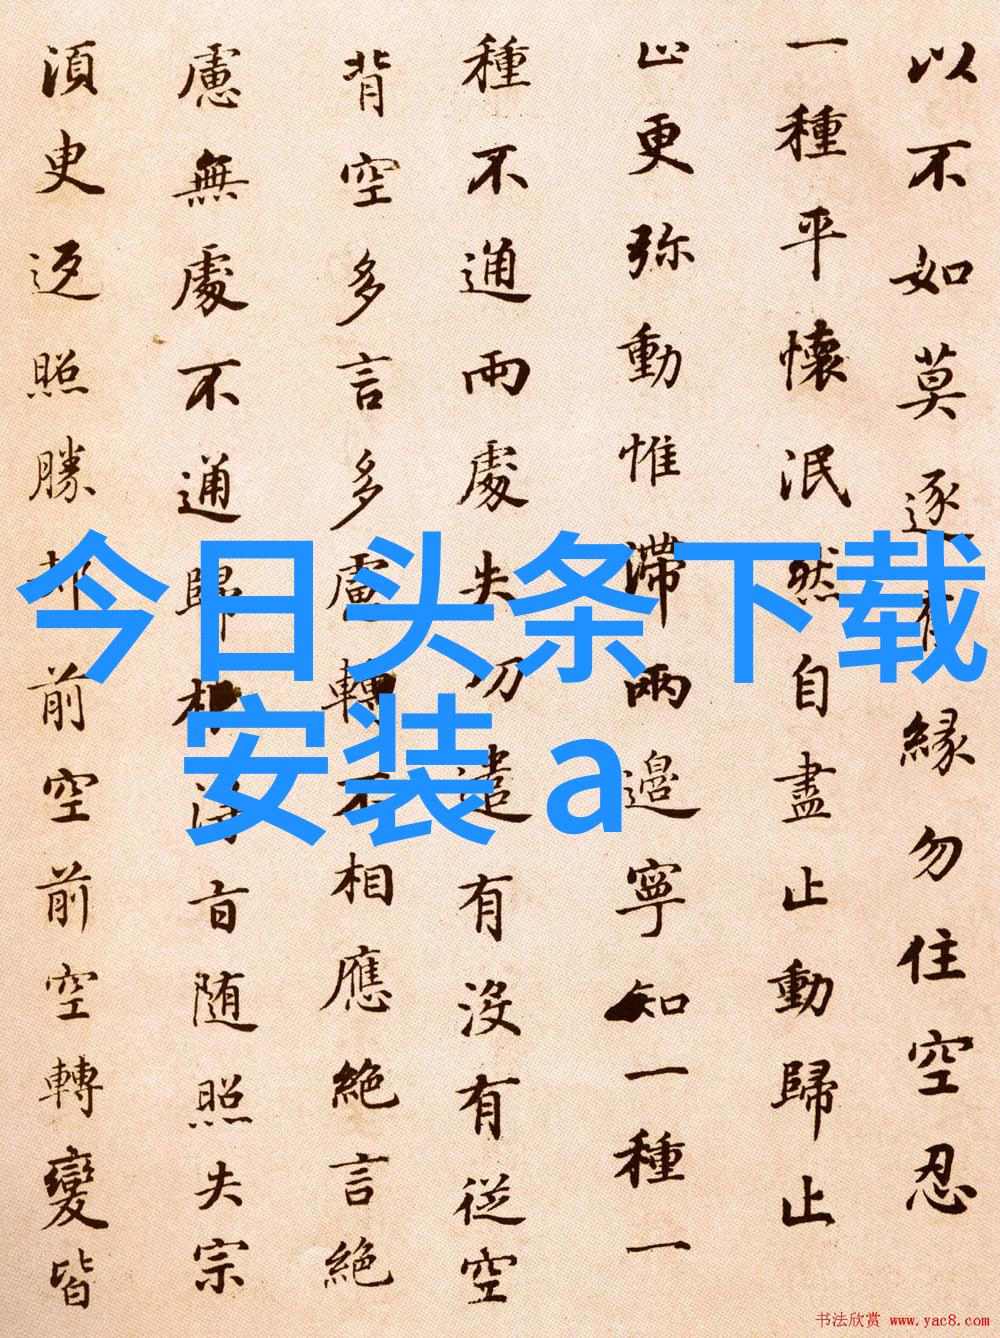 以不如莫逐有緣勿住空忍
一種平懷泯然自盡止動歸止
止更弥動惟滞兩邊寧知一種一
種不通兩處失功遣有没有從空
背空多言多慮轉不相應絶言絶
慮無處不通歸根得旨随照失宗
須臾返照勝却前空前空轉變皆
今日头条下载
安装 a
书法欣赏 www.yac8.com